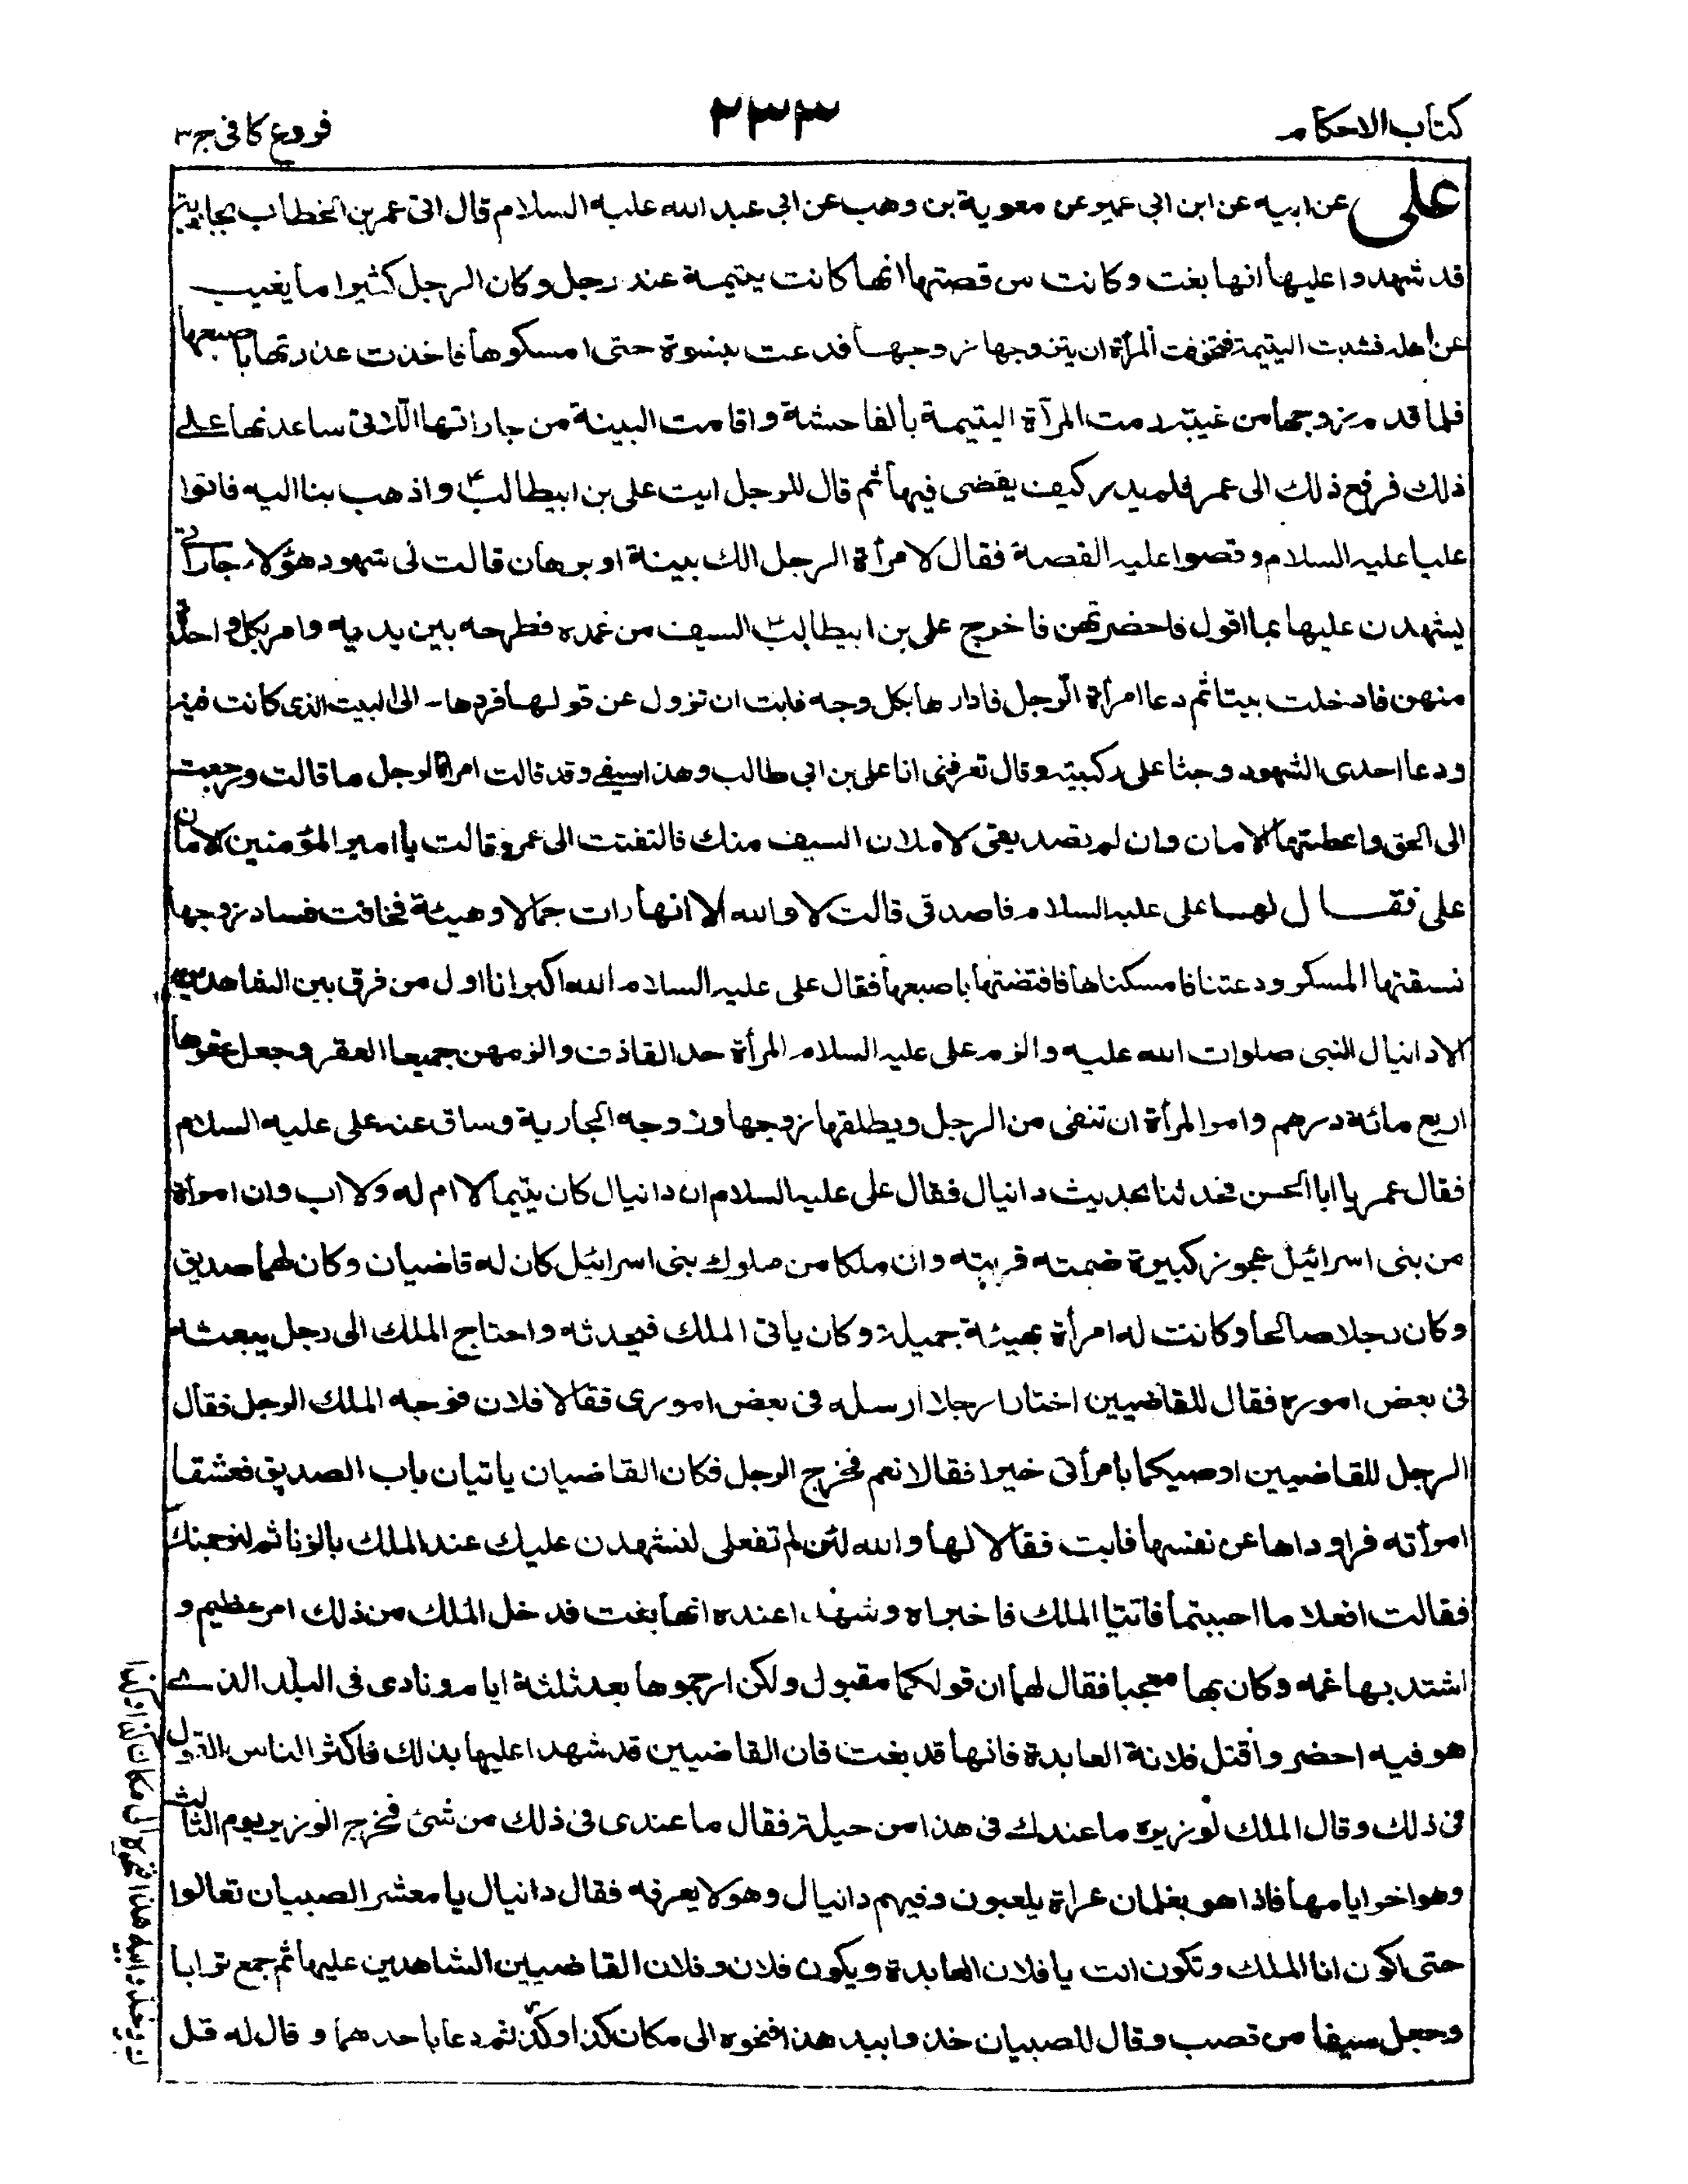 كتاب الاحكام
٢٣٣
فروع كافى ج٣
على عن ابيه عن ابن ابي عمير عن معوية بن وهب عن ابي عبد الله عليه السلام قال اتى عمر بن الخطاب بجارية
قد شهدوا عليها انها بغت وكانت من قصتها انها كانت يتيمة عند رجل وكان الرجل كثيرا ما يغيب
عن اهله فشبت اليتيمة فتخوفت المرأة ان يتزوجها زوجها فدعت بنسوة حتى امسكوها فاخذت عذرتها باصبعها
فلما قدم زوجها من غيبته رمت المرآة اليتيمة بالفاحشة واقامت البينة من جاراتها اللاتى ساعدنها على
ذلك فرفع ذلك الى عمر فلم يدر كيف يقضى فيها ثم قال للرجل ايت على بن ابيطالب واذهب بنا اليه فاتوا
عليا عليه السلام وقصوا عليه القصة فقال لامرأة الرجل الك بينة او برهان قالت لى شهود هؤلاء جاراتى
يشهدن عليها بما اقول فاحضرتهن فاخرج على بن ابيطالب السيف من غمده فطرحه بين يديه وامر بكل واحدة
منهن فادخلت بيتا ثم دعا امرأة الرجل فادارها بكل وجه فابت ان تزول عن قولها فردها الى البيت الذى كانت فيه
ودعا احدى الشهود وجثا على ركبتيه وقال تعرفنى انا على بن ابي طالب وهذا سيفى وقد قالت امرأة الرجل ما قالت ورجعت
الى الحق واعطيتها الامان وان لم تصدقينى لاملان السيف منك فالتفتت الى عمر وقالت يا امير المؤمنين الامان
على فقال لها على عليه السلام فاصدقى قالت لا والله الا انها رات جمالا وهيئة فخافت فساد زوجها
فسقتها المسكر ودعتنا فامسكناها فافتضتها باصبعها فقال على عليه السلام الله اكبر انا اول من فرق بين الشاهدين
الا دانيال النبى صلوات الله عليه والزم على عليه السلام المرأة حد القاذف والزمهن جميعا العقر وجعل عقرها
اربع مائة درهم وامر المرأة ان تنفى من الرجل ويطلقها زوجها وزوجه الجارية وساق عنه على عليه السلام
فقال عمر يا ابا الحسن فحدثنا بحديث دانيال فقال على عليه السلام ان دانيال كان يتيما لا ام له ولا اب وان امرأة
من بنى اسرائيل عجوز كبيرة ضمته فربته وان ملكا من ملوك بنى اسرائيل كان له قاضيان وكان لهما صديق
وكان رجلا صالحا وكانت له امرأة بهيئة جميلة وكان ياتى الملك فيحدثه واحتاج الملك الى رجل يبعثه
فى بعض اموره فقال للقاضيين اختارا رجلا ارسله فى بعض امورى فقالا فلان فوجهه الملك الرجل فقال
الرجل للقاضيين اوصيكما بامرأتى خيرا فقالا نعم فخرج الرجل فكان القاضيان ياتيان باب الصديق فعشقا
امرأته فراوداها عن نفسها فابت فقالا لها والله لئن لم تفعلى لنشهدن عليك عند الملك بالزنا ثم لنرجمنك
فقالت افعلا ما احببتما فاتيا الملك فاخبراه وشهدا عنده انها بغت فدخل الملك من ذلك امر عظيم و
اشتد بها غمه وكان بها معجبا فقال لهما ان قولكما مقبول ولكن ارجموها بعد ثلثة ايام ونادى فى البلد الذى
هو فيه احضروا قتل فلانة العابدة فانها قد بغت فان القاضيين قد شهدا عليها بذلك فاكثر الناس القول
فى ذلك وقال الملك لوزيره ما عندك فى هذا من حيلة فقال ما عندى فى ذلك من شئ فخرج الوزير يوم الثالث
وهو اخر ايامها فاذا هو بغلمان عراة يلعبون وفيهم دانيال وهو لا يعرفه فقال دانيال يا معشر الصبيان تعالوا
حتى اكون انا الملك وتكون انت يا فلان العابدة ويكون فلان وفلان القاضيين الشاهدين عليها ثم جمع ترابا
وجعل سيفا من قصب وقال للصبيان خذوا بيد هذا فنحوه الى مكان كذا وكذا ثم دعا باحدهما وقال له قل